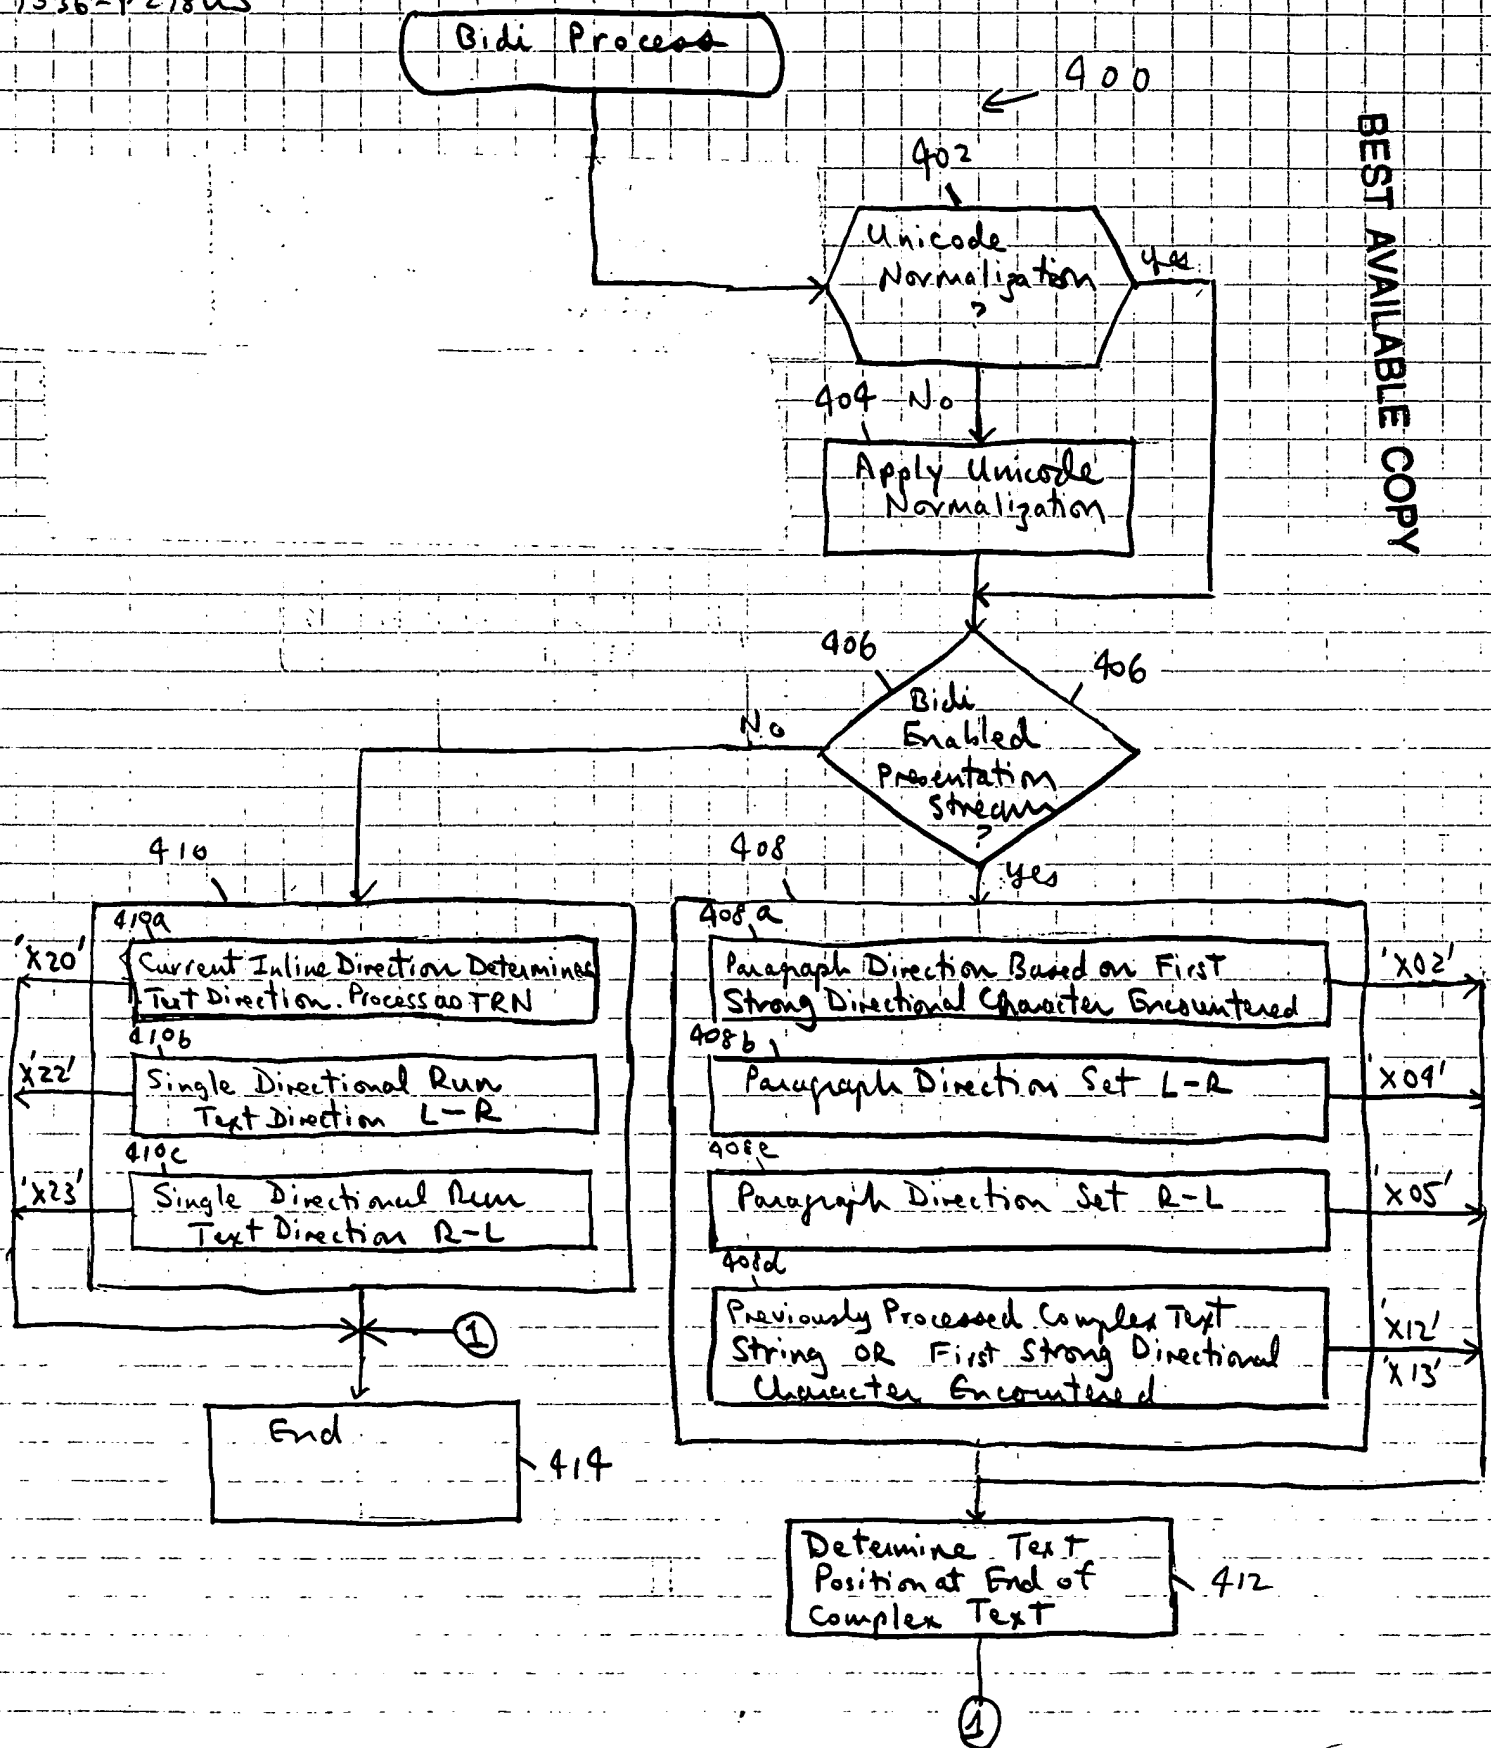 1536-P278US
Bidi Process
400
402
BEST AVAILABLE COPY
Unicode
Normalization
?
yes
404 No
Apply Unicode
Normalization
406
406
Bidi
Enabled
Presentation
Stream
?
No
yes
410
408
410a
'X20'
Current Inline Direction Determines
Text Direction. Process as TRN
410b
'X22'
Single Directional Run
Text Direction L-R
410c
'X23'
Single Directional Run
Text Direction R-L
1
End
414
408a
Paragraph Direction Based on First
Strong Directional Character Encountered
'X02'
408b
Paragraph Direction Set L-R
'X04'
408c
Paragraph Direction Set R-L
'X05'
408d
Previously Processed Complex Text
String OR First Strong Directional
Character Encountered
'X12'
'X13'
Determine Text
Position at End of
Complex Text
412
1